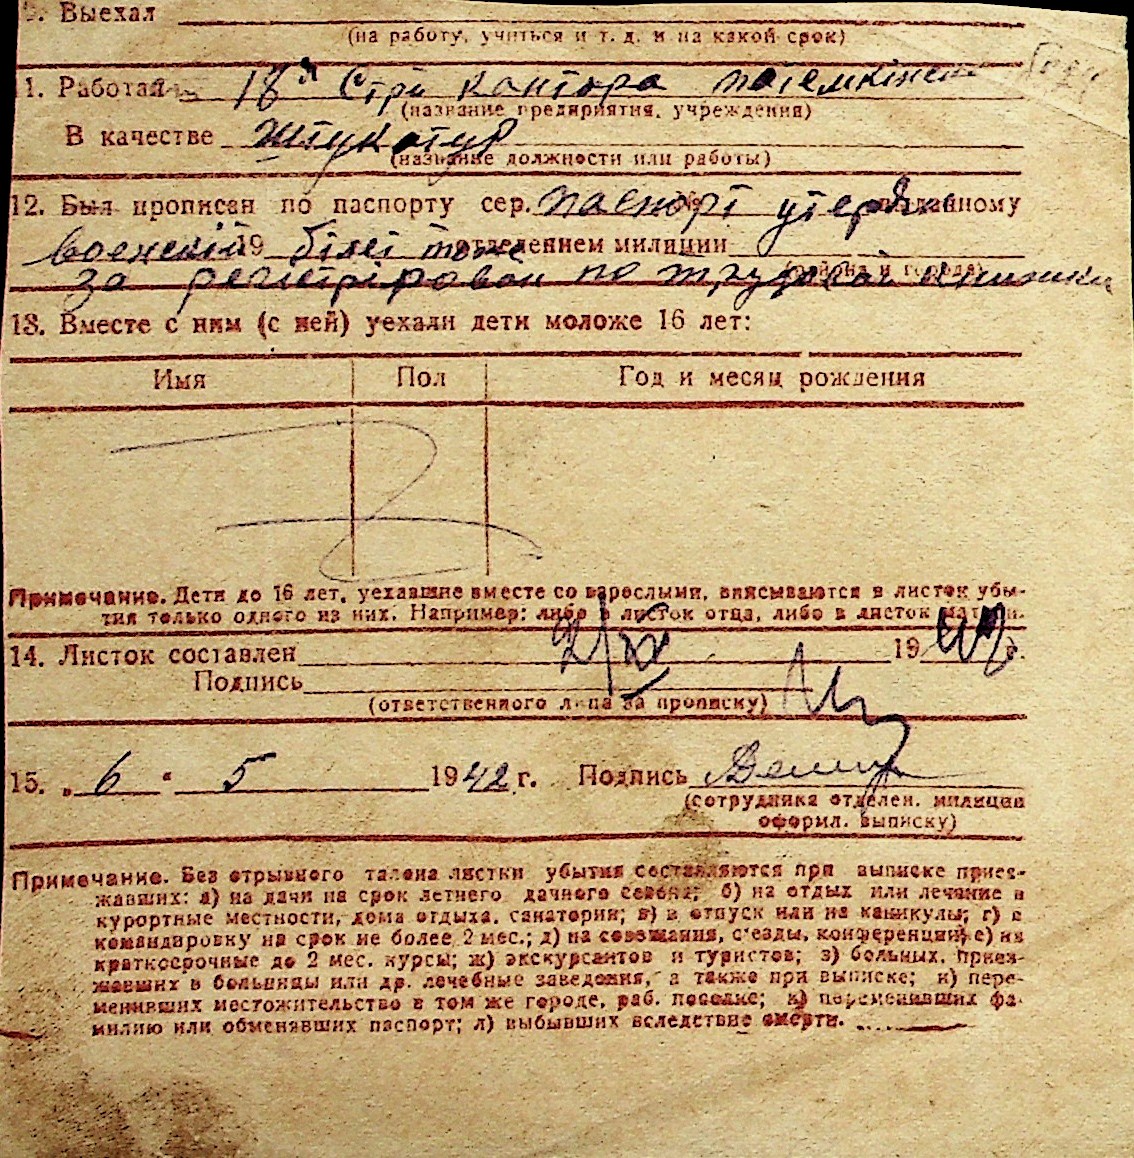 Выехал
(на работу, учиться и т. д. и на какой срок)
1. Работал 18я Стр кантора
(название предприятия, учреждения)
В качестве Штукатур
(название должности или работы)
12. Был прописан по паспорту сер. паспорт № утерян выданному
военский 19 білет тоже отделением милиции
за регістрірован по трудовой книжки
(района и города)
13. Вместе с ним (с ней) уехали дети моложе 16 лет:
Имя Пол Год и месяц рождения
Примечание. Дети до 16 лет, уехавшие вместе со взрослыми, вписываются в листок убы-
тия только одного из них. Например: либо в листок отца, либо в листок матери.
14. Листок составлен 2/IV 1942 г.
Подпись
(ответственного лица за прописку)
15. „ 6 " 5 1942 г. Подпись
(сотрудника отделен. милиции
оформил. выписку)
Примечание. Без отрывного талона листки убытия составляются при выписке приез-
жавших: а) на дачи на срок летнего дачного сезона; б) на отдых или лечение в
курортные местности, дома отдыха, санатории; в) в отпуск или на каникулы; г) в
командировку на срок не более 2 мес.; д) на совещания, с'езды, конференции; е) на
краткосрочные до 2 мес. курсы; ж) экскурсантов и туристов; з) больных, приез-
жавших в больницы или др. лечебные заведения, а также при выписке; и) пере-
менивших местожительство в том же городе, раб. поселке; к) переменивших фа-
милию или обменявших паспорт; л) выбывших вследствие смерти.